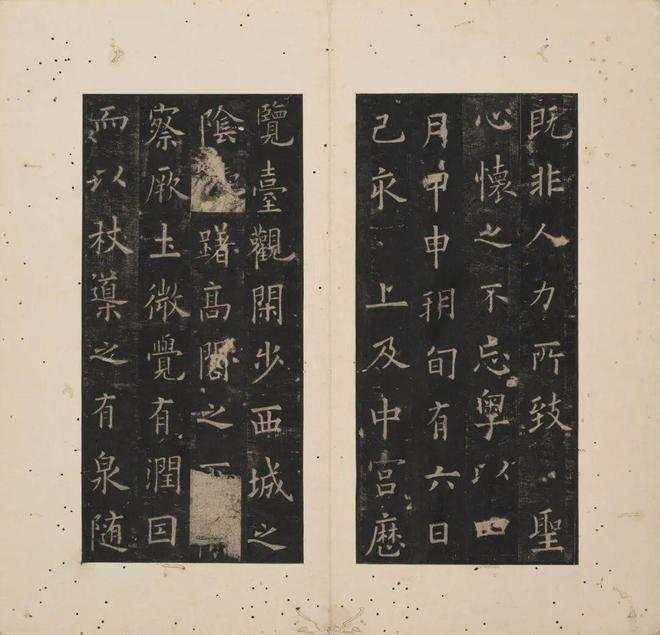 既非人力所致 聖
心懷之不忘粵以四
月甲申朔旬有六日
己亥 上及中宮歷
覽臺觀閑步西城之
陰躇高閣之
察厥土微覺有潤因
而以杖導之有泉随